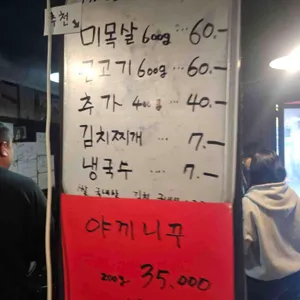 추천
미목살 600g ... 60.-
근고기 600g ... 60.-
추가 400g ... 40.-
김치찌개 ... 7.-
냉국수 ... 7.-
야끼니꾸
200g 35,000